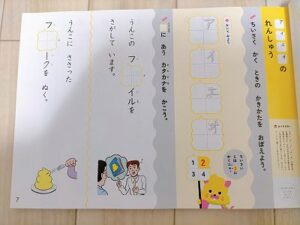 の れんしゅう
ちいさく かく ときの かきかたを おぼえよう。
ァ
ィ
ェ
ォ
1 2
3 4
に あう カタカナを かこう。
うんこの フ イルを
さがして います。
うんこに ささった
フ ークを ぬく。
7